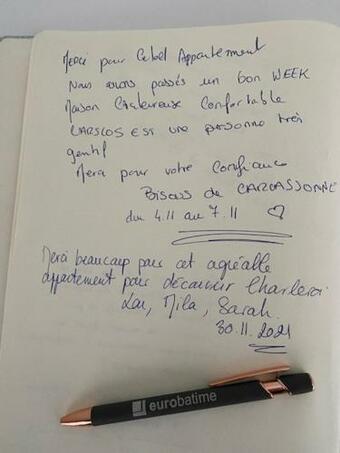 Merci pour ce bel Appartement
Nous avons passés un bon WEEK
Maison Chaleureux Confortable
CARSLOS EST une personne très
gentil
Merci pour votre Confiance
Bisous de CARCASSONNE
du 4.11 au 7.11 ♡
Merci beaucoup pour cet agréable
appartement pour découvrir Charleroi
Lou, Mila, Sarah.
30.11.2021
eurobatime